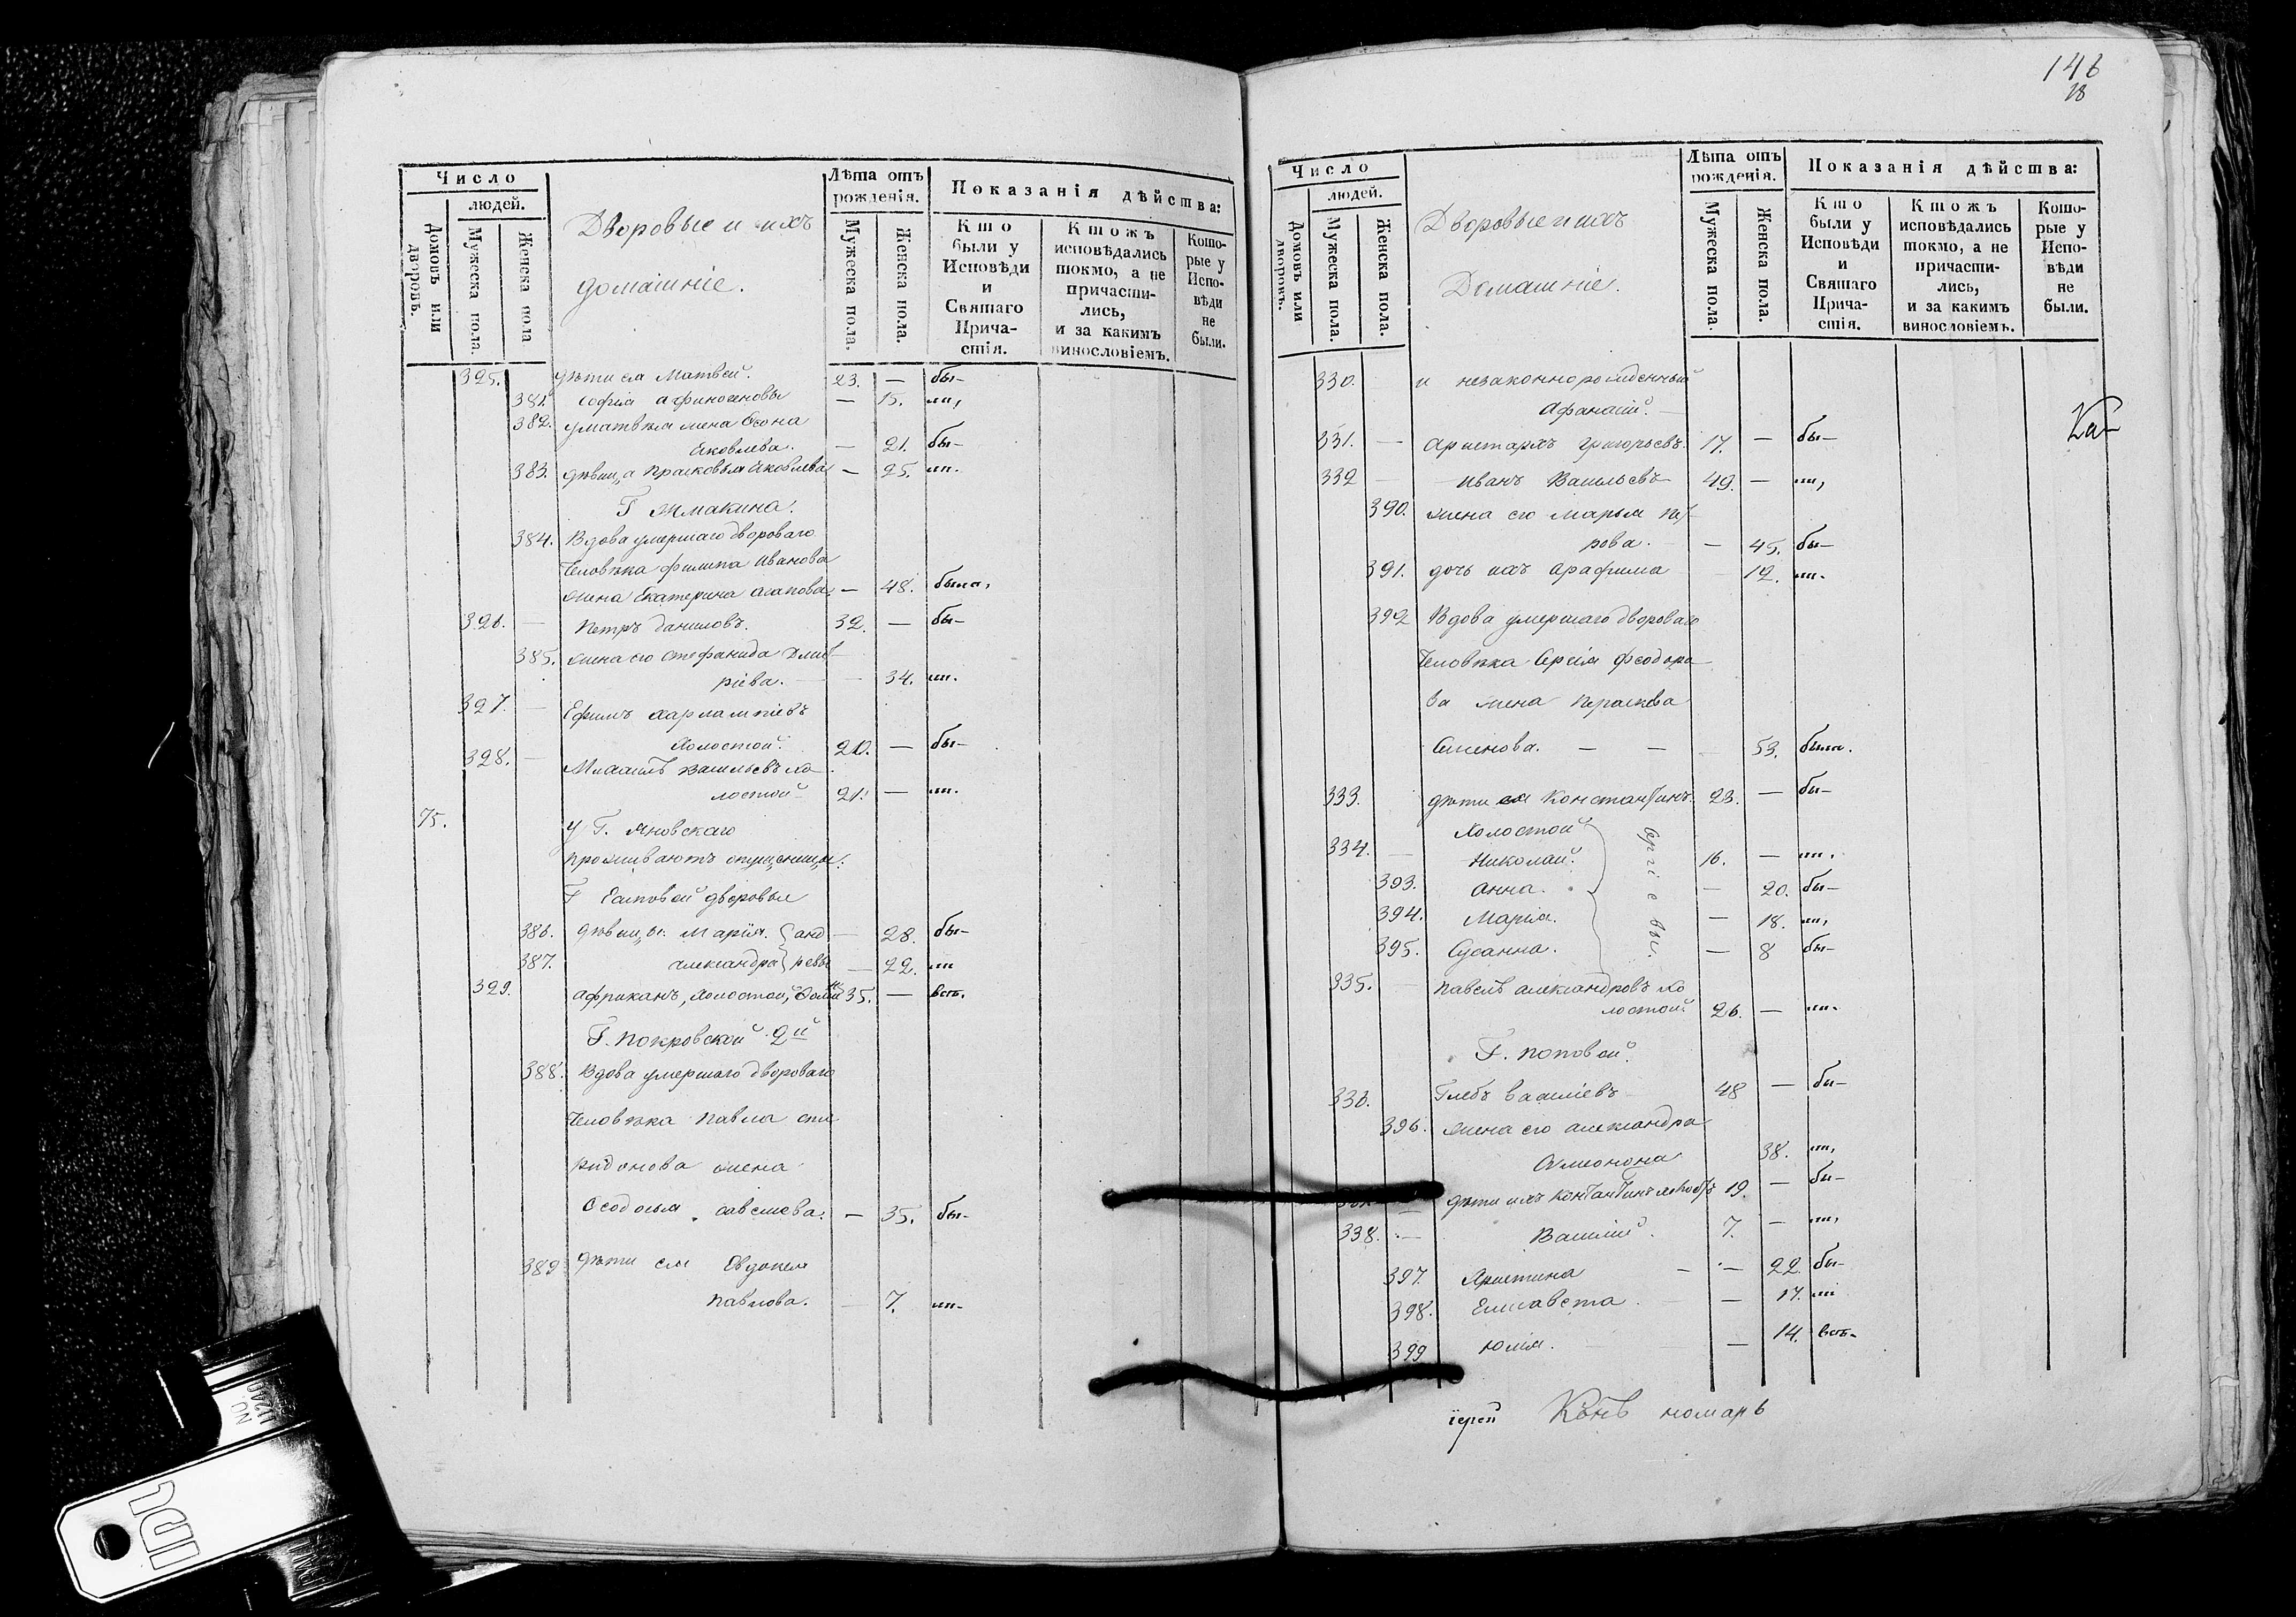 Число
людей.
Домовъ или дворовъ.
Мужеска пола.
Женска пола
Дворовые и ихъ
домашніе.
Лѣта отъ рожденія.
Мужеска пола.
Женска пола.
Показанія дѣйства:
Кто были у Исповѣди и Святаго Прича-стія.
Ктожъ исповѣдались токмо, а не причасти-лись, и за какимъ винословіемъ.
Кото-рые у Испо-вѣди не были.
325. дѣти ея Матвей. 23. — бы-
381. Софія Афиногеновы — 15. ли,
382. у Матвѣя жена Ѳеона
Яковлева. — 21. бы-
383. дѣвица Прасковья Яковлева — 25. ли.
Г Жмакина.
384. Вдова умершаго двороваго
человѣка Филипа Иванова
жена Екатерина Агапова — 48. была,
326. — Петръ Даниловъ. 32. — бы-
385. жена его Стефанида Дмит-
ріева. — 34. ли.
327. — Ефимъ Харлампіевъ
холостой. 20. — бы-
328. — Михаилъ Васильевъ хо-
лостой 21. — ли.
75. У Г. Яновскаго
проживаютъ
Г дворовыя
386. дѣвицы. Марія. { Анд — 28. бы-
387. Александра } реевы — 22. ли
329. Африканъ, холостой, 35. — всѣ.
Г. Покровской 2й
388. Вдова умершаго двороваго
человѣка Павла Спи
ридонова жена
Ѳеодосья Савельева. — 35. бы-
389 дѣти ея Евдокея
Павлова. — 7. ли-
146
18
Число
людей.
Домовъ или дворовъ.
Мужеска пола.
Женска пола.
Дворовые и ихъ
Домашніе.
Лѣта отъ рожденія.
Мужеска пола.
Женска пола.
Показанія дѣйства:
Кто были у Исповѣди и Святаго Прича-стія.
Ктожъ исповѣдались токмо, а не причасти-лись, и за какимъ винословіемъ.
Кото-рые у Испо-вѣди не были.
330. и незаконнорожденный
Афанасій. —
331. — Аристархъ Григорьевъ. 17. — бы-
332 — Иванъ Васильевъ 49. — ли,
390. жена его Марья Пет-
рова. — 45. бы-
391. дочь ихъ Серафима 12. ли.
392 Вдова умершаго двороваго
человѣка Сергія Феодоро
ва жена Параскева
Семенова. — — — 53. была.
333. дѣти ея Константинъ. 23. — бы-
Холостой
334. — Николай. 16. — ли.
393. Анна. — 20. бы-
394. Марія. — 18. ли,
395. Сусанна. — 8 бы-
Сергіевы.
335. — Павелъ Александровъ хо
лостой. 26. — ли.
Г. Поповой.
336. Глебъ Василіевъ 48 — бы-
396. жена его Александра
38. ли,
дѣти ихъ 19. — бы-
338. — Василій. 7. — ли,
397 Христина — — 22. бы-
398. Елисавета. — 17. ли
399 Юлія. — 14. всѣ-
іерей